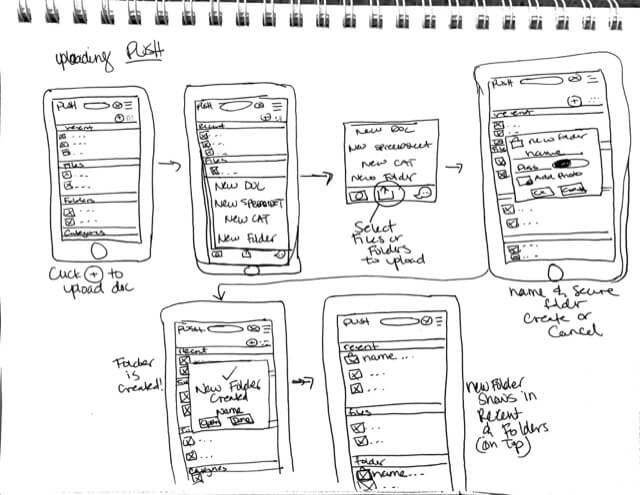 uploading PUSH
PUSH
recent
Files
Folders
Categories
Click + to
upload doc
PUSH
Recent
Files
New DOC
New SPREADSHEET
New CAT
New Folder
New DOC
New SPREADSHEET
New CAT
New Folder
Select
Files or
Folders
to upload
PUSH
recent
New Folder
name
Pass
Add Photo
name & Secure
foldr
Create or
Cancel
Folder
is
Created!
PUSH
recent
New Folder
Created
Name
Open
Categories
PUSH
recent
name...
Files
Folder
name...
new Folder
Shows in
Recent
& Folders
(on Top)